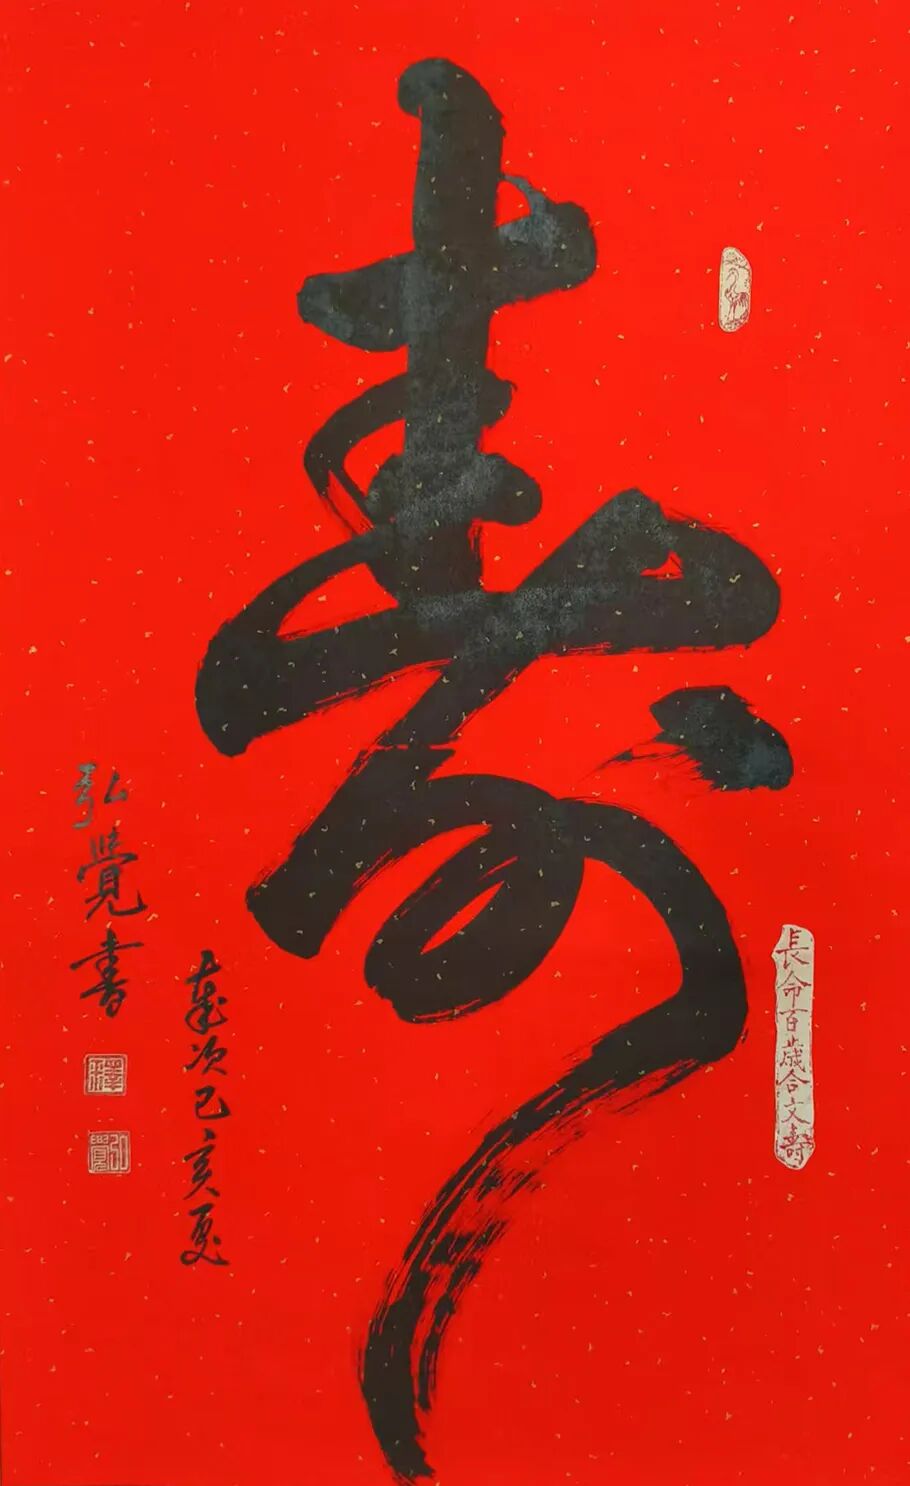 長命百歲合文壽
壽
歲次己亥夏
弘覺書
釋
弘覺